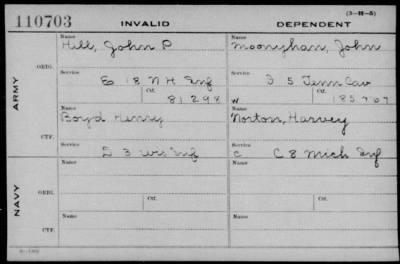 110703 INVALID DEPENDENT (3-H-5)
Name Name
Hill, John P Moonyhan, John
ORIG. Service Service
E 18 N H Inf 3 5 Tenn Cav
Ctf. Ctf.
81298 W 185767
ARMY
Name Name
Boyd Henry Norton, Harvey
CTF. Service Service
D 3 Wis Inf C C 8 Mich Inf
Name Name
ORIG. Service Service
Ctf. Ctf.
NAVY
Name Name
CTF. Service Service